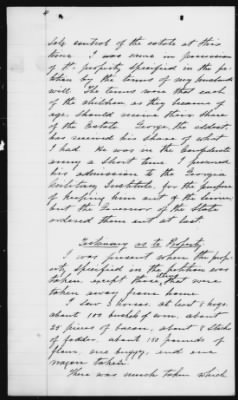 sole control of the estate at this
time. I was once in possession
of the property specified in the pe-
tition by the terms of my husband's
will. The terms were that each
of the children as they became of
age, should receive their share
of the Estate. George, the oldest,
has received his share of what
I had. He was in the Confederate
army a short time. I procured
his admission to the Georgia
Military Institute, for the purpose
of keeping him out of the service
but the Governor of the State
ordered them out at last.
Testimony as to Property
I was present when the prop-
erty specified in the petition was
taken, except those that were
taken away from home.
I saw 3 horses, at least 8 hogs,
about 100 bushels of corn, about
20 pieces of bacon, about 8 stacks
of fodder, about 150 pounds of
flour, one buggy, and one
wagon taken.
There was much taken which